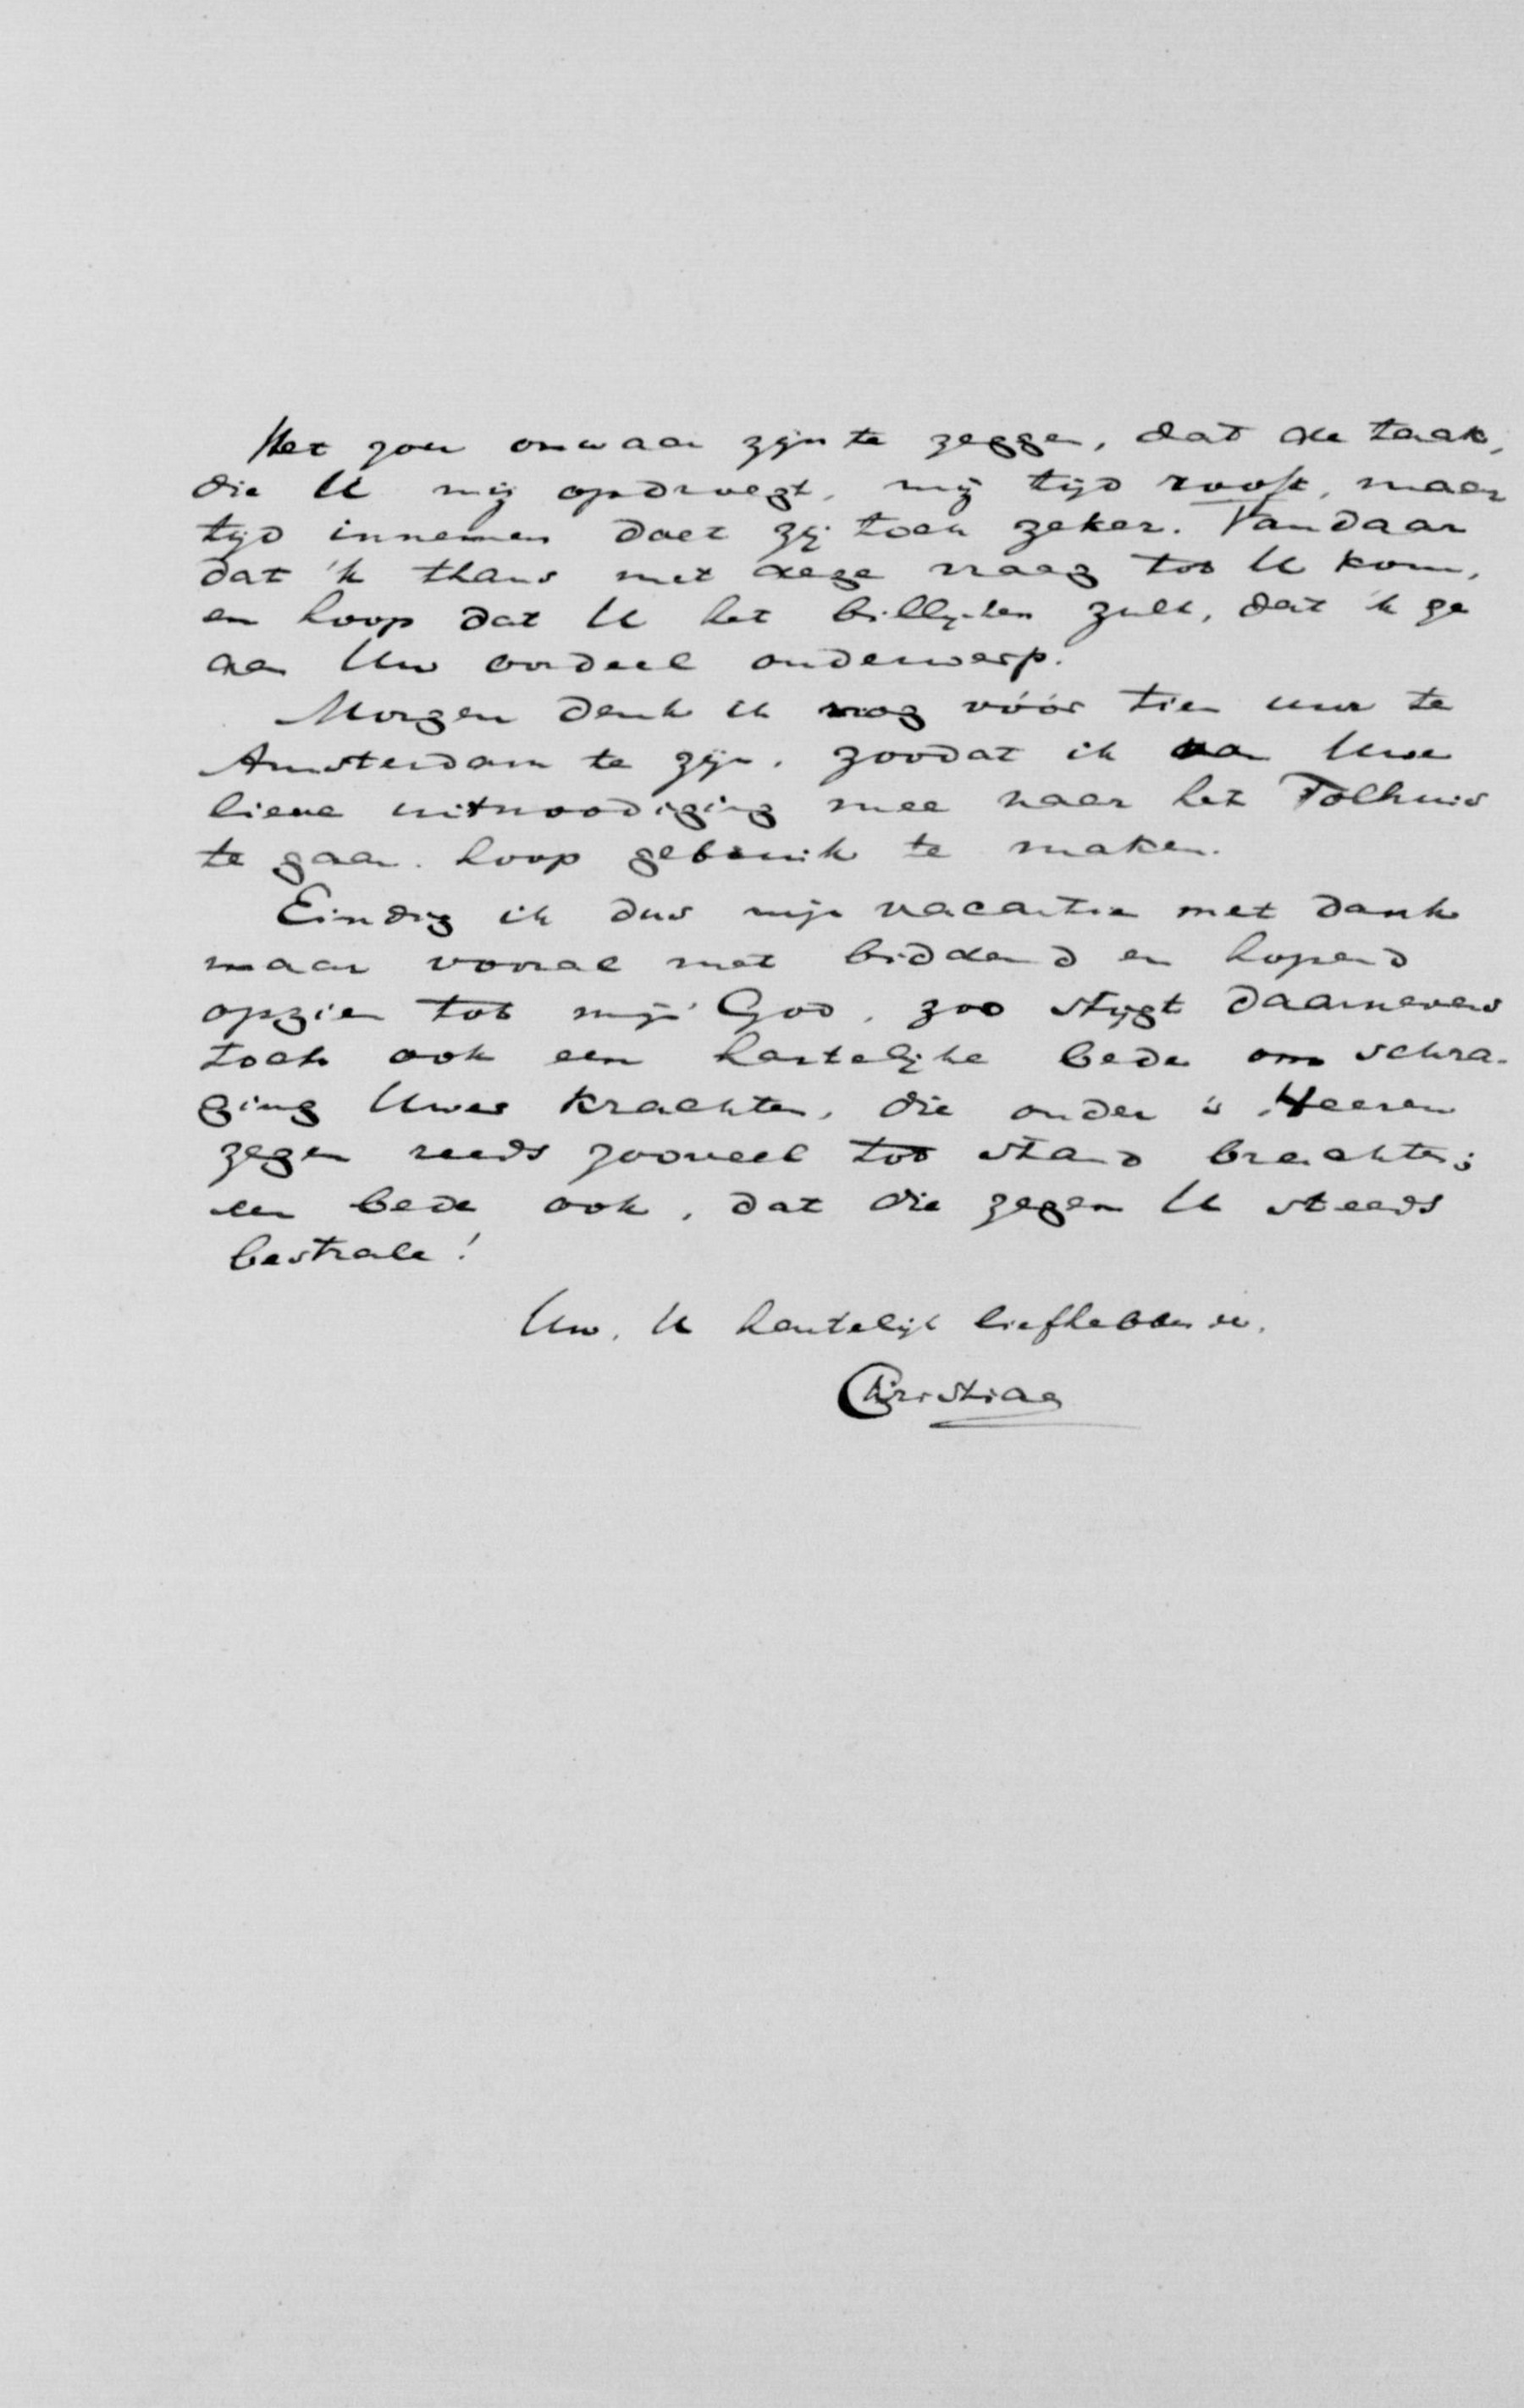 Het zou onwaar zijn te zeggen, dat de taak,
die U mij opdroegt, mij tijd rooft, maar
tijd innemen doet zij toch zeker. Vandaar
dat 'k thans met deze vraag tot U kom,
en hoop dat U het billijken zult, dat 'k ze
aan Uw oordeel onderwerp.
Morgen denk ik nog vóór tien uur te
Amsterdam te zijn, zoodat ik van Uwe
lieve uitnoodiging mee naar het Tolhuis
te gaan, hoop gebruik te maken.
Eindig ik dus mijn vacantie met dank
maar vooral met biddend en hopend
opzien tot mijn God, zoo stijgt daarnevens
toch ook een hartelijke bede om schra-
ging Uwer krachten, die onder 's Heeren
zegen reeds zooveel tot stand brachten;
een bede ook, dat die zegen U steeds
bestrale!
Uw, U hartelijk liefhebbende,
Christiaan